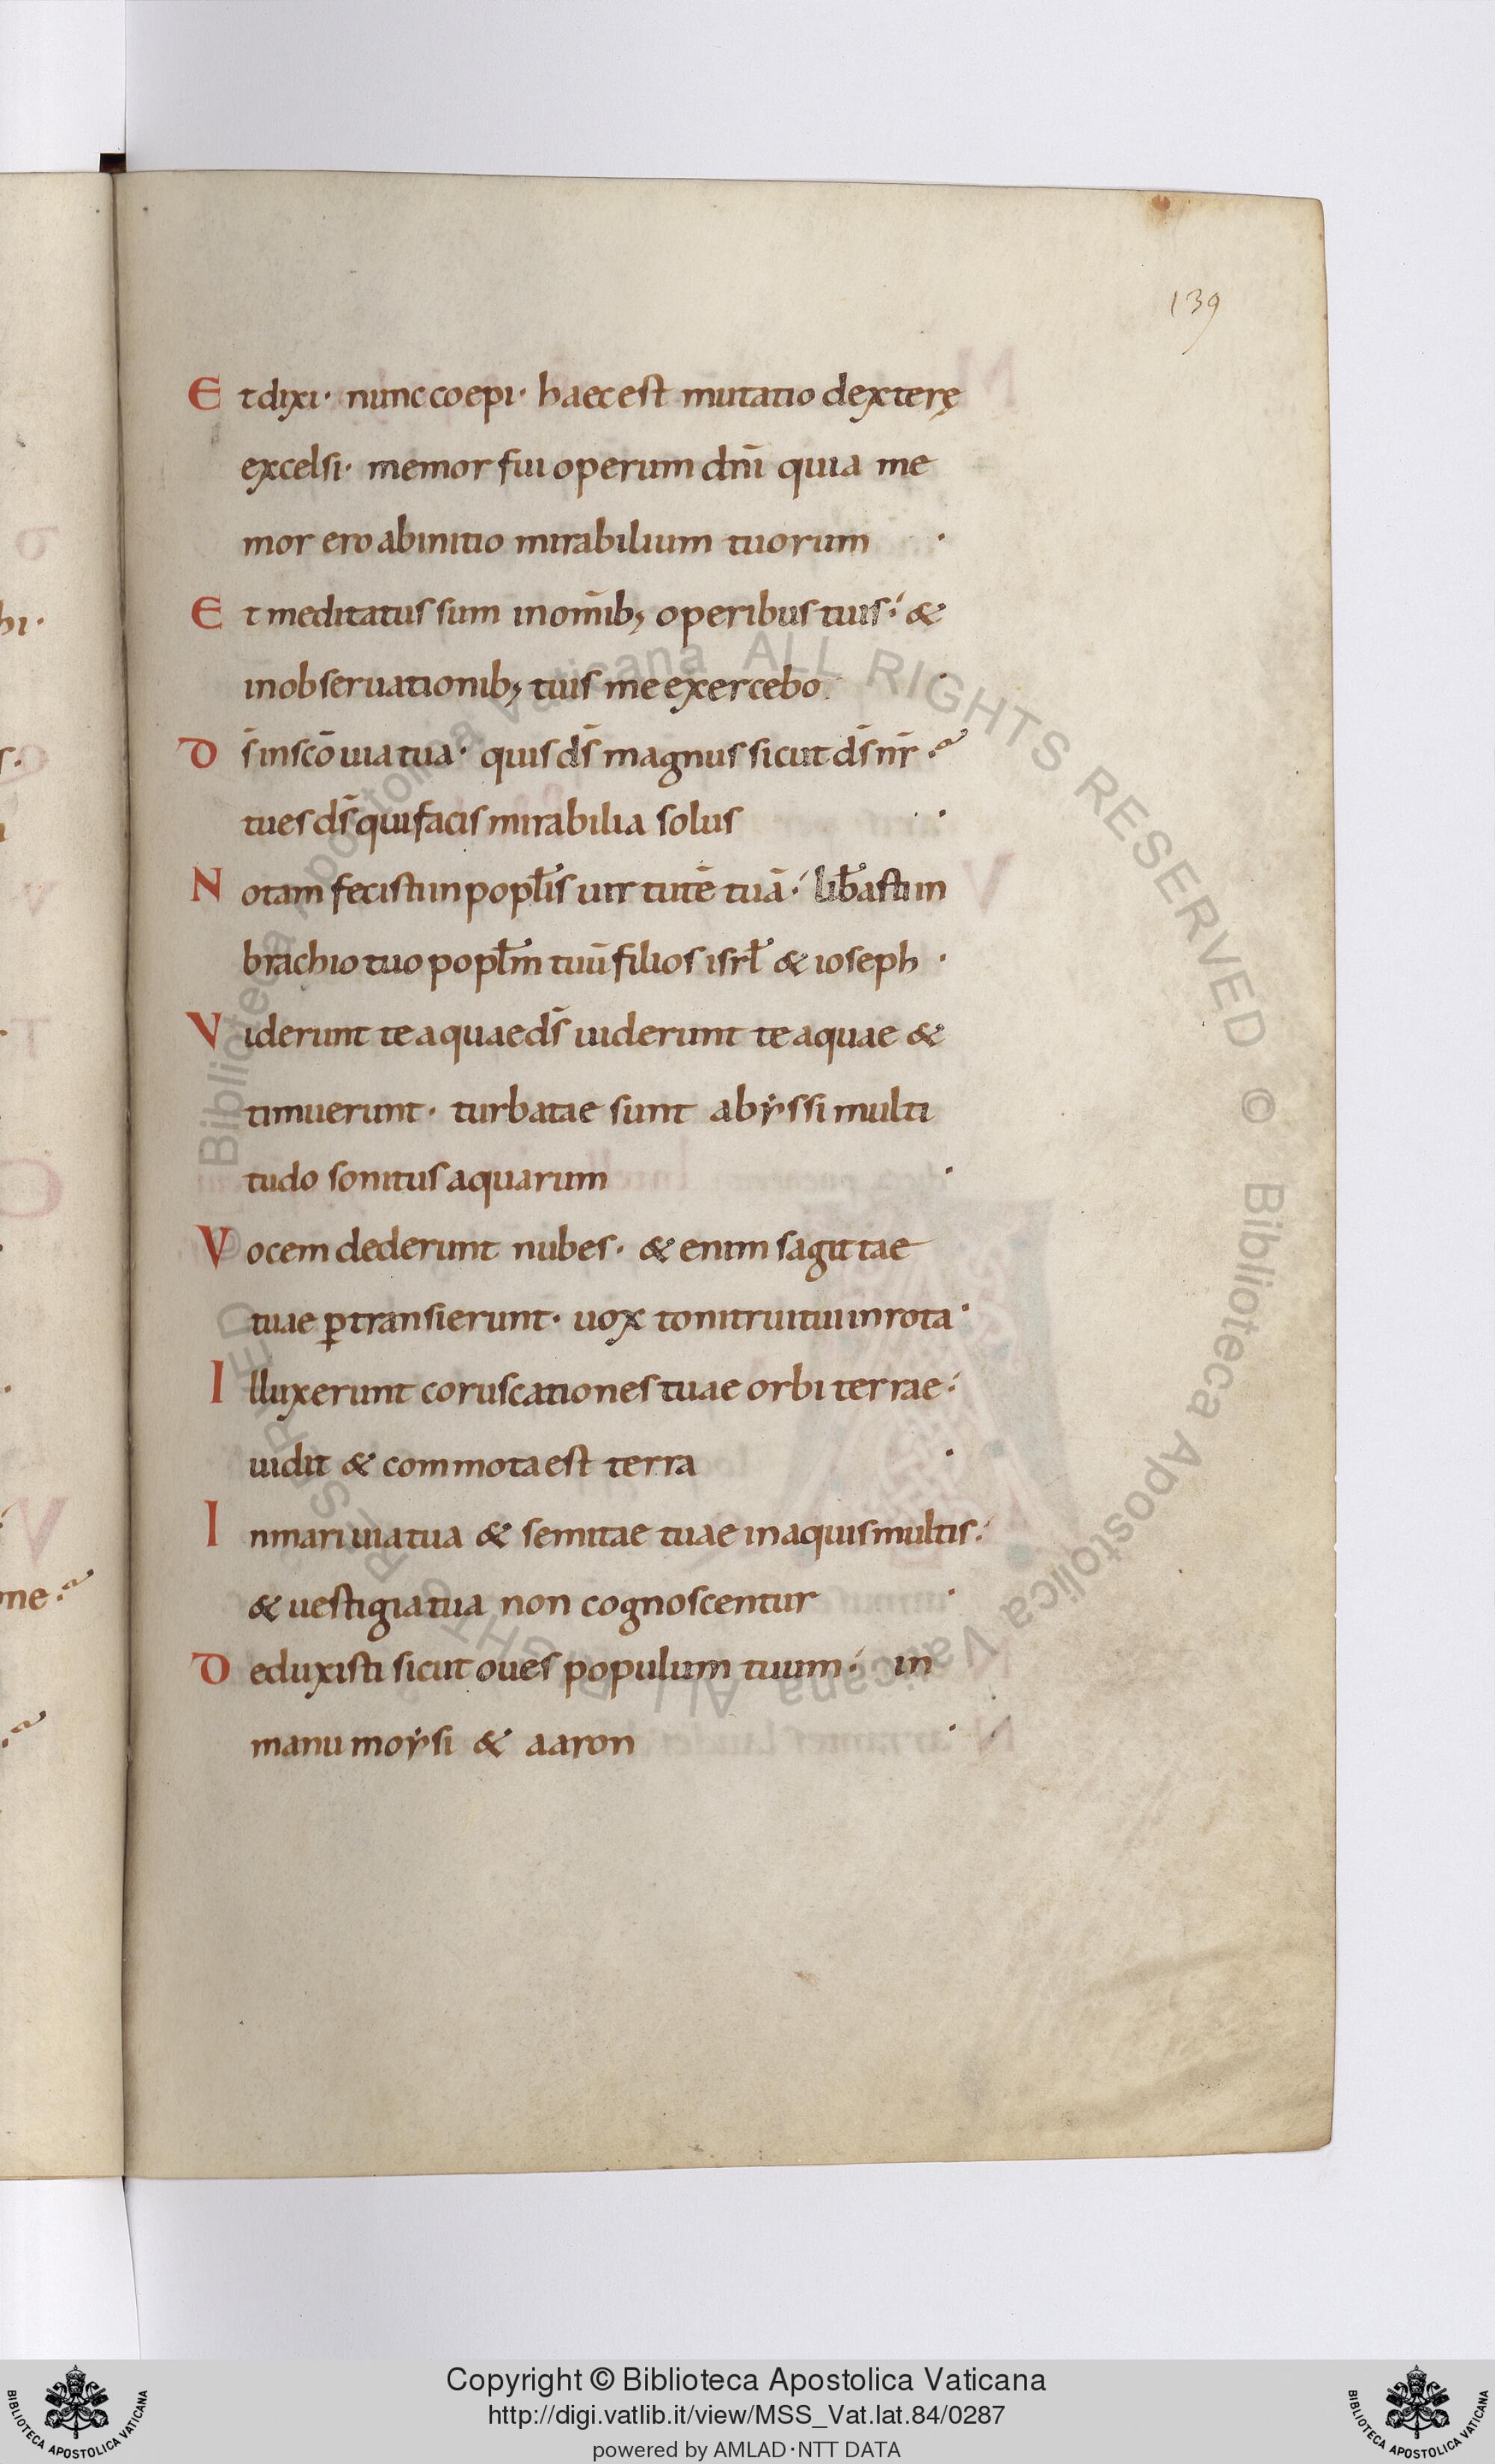 139
Et dixi· nunc coepi· haec est mutatio dexterę
excelsi· memor fui operum dnī quia me
mor ero ab initio mirabilium tuorum ·
Et meditatus sum in om̄ib; operibus tuis· &
in obseruationib; tuis me exercebo ·
Ds̄ in scō uia tua· quis ds̄ magnus sicut ds̄ nr̄?
tu es ds̄ qui facis mirabilia solus ·
Notam fecisti in popl̄is uirtutē tuā· lib̄asti in
brachio tuo popl̄m tuū filios isrl̄ & ioseph ·
Viderunt te aquae ds̄ uiderunt te aquae &
timuerunt· turbatae sunt abẏssi multi
tudo sonitus aquarum ·
Vocem dederunt nubes· & enim sagittae
tuae ꝑtransierunt· uox tonitrui tui in rota·
Illuxerunt coruscationes tuae orbi terrae·
uidit & commota est terra ·
In mari uia tua & semitae tuae in aquis multis·
& uestigia tua non cognoscentur ·
Deduxisti sicut oues populum tuum· in
manu moẏsi & aaron ·
Biblioteca Apostolica Vaticana ALL RIGHTS RESERVED © Biblioteca Apostolica Vaticana ALL RIGHTS RESERVED
Copyright © Biblioteca Apostolica Vaticana
http://digi.vatlib.it/view/MSS_Vat.lat.84/0287
powered by AMLAD·NTT DATA
BIBLIOTECA APOSTOLICA VATICANA
BIBLIOTECA APOSTOLICA VATICANA